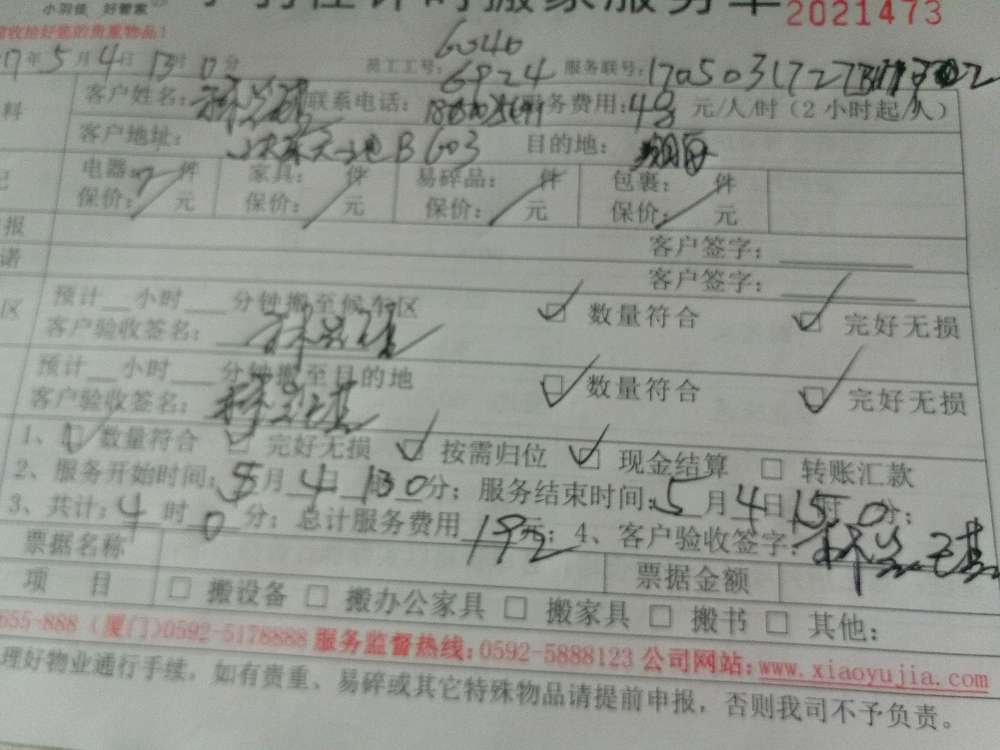 小羽佳 好管家 计时搬家服务单 2021473
贵重物品！
6046
年5月4日13时0分 员工工号：6924 服务联号：
客户姓名： 联系电话： 服务费用：48元/人/时（2小时起/人）
客户地址： B603 目的地：
电器： 件 家具： 件 易碎品： 件 包裹： 件
保价： 元 保价： 元 保价： 元 保价： 元
报 客户签字：
诺 客户签字：
区 预计 小时 分钟搬至候车区 数量符合 完好无损
客户验收签名：
预计 小时 分钟搬至目的地 数量符合 完好无损
客户验收签名：
1、 数量符合 完好无损 按需归位 现金结算 转账汇款
2、服务开始时间：5月4日13 0分；服务结束时间：5月4日15时0分；
3、共计：4时0分；总计服务费用192元；4、客户验收签字：
票据名称 票据金额
项 目 搬设备 搬办公家具 搬家具 搬书 其他：
655-888（厦门）0592-5178888 服务监督热线：0592-5888123 公司网站：www.xiaoyujia.com
理好物业通行手续，如有贵重、易碎或其它特殊物品请提前申报，否则我司不予负责。